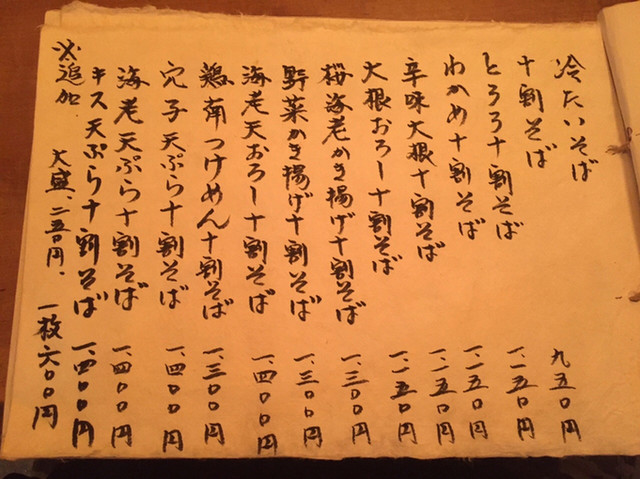 冷たいそば
十割そば 九五〇円
とろろ十割そば 一、一五〇円
わかめ十割そば 一、一五〇円
辛味大根十割そば 一、一五〇円
大根おろし十割そば 一、一五〇円
桜海老かき揚げ十割そば 一、三〇〇円
野菜かき揚げ十割そば 一、三〇〇円
海老天おろし十割そば 一、四〇〇円
鶏南つけめん十割そば 一、三〇〇円
穴子天ぷら十割そば 一、四〇〇円
海老天ぷら十割そば 一、四〇〇円
キス天ぷら十割そば 一、四〇〇円
※追加 大盛、二五〇円、一枚六〇〇円